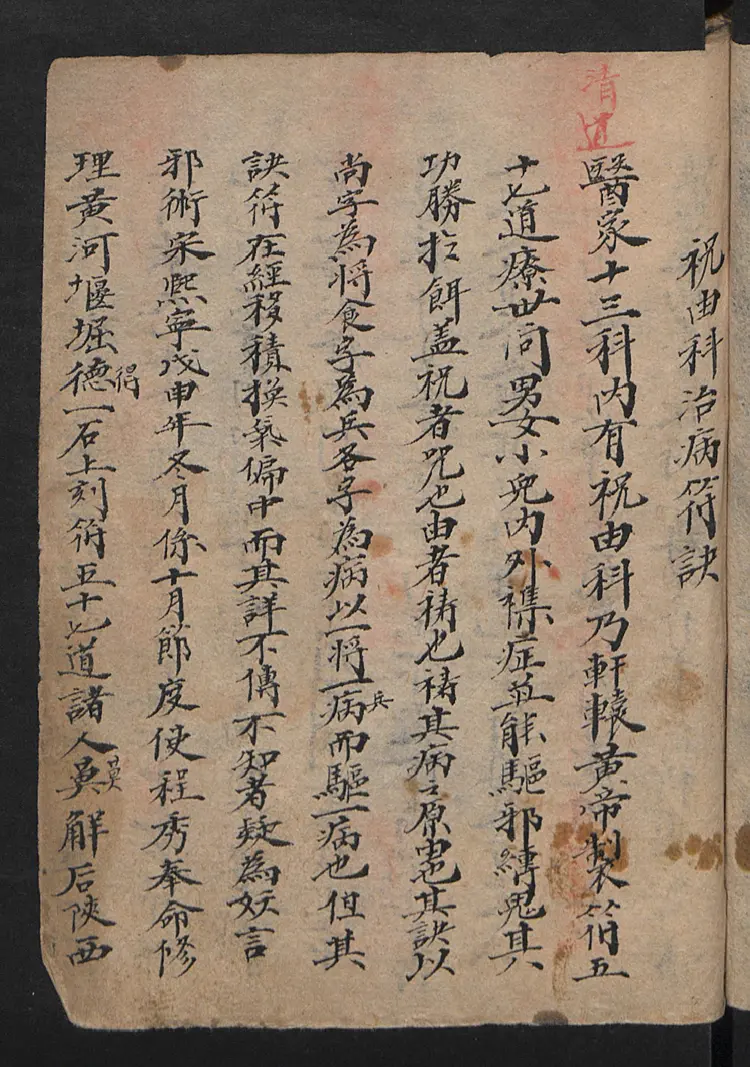 祝由科治病符訣
清道
醫家十三科內有祝由科乃軒轅黃帝製符五
十七道療世間男女小兒內外襍症並能驅邪縛鬼其
功勝扵餌蓋祝者咒也由者祷也祷其病之原由也其訣以
尚字為將食字為兵各字為病以一將一病兵而驅一病也但其
訣符在經移積换氣偏中而其詳不傳不知者疑為妖言
邪術宋熈寧戊申年冬月係十月節度使程秀奉命修
理黃河堰堀德得一石上刻符五十七道諸人莫莫解后陝西